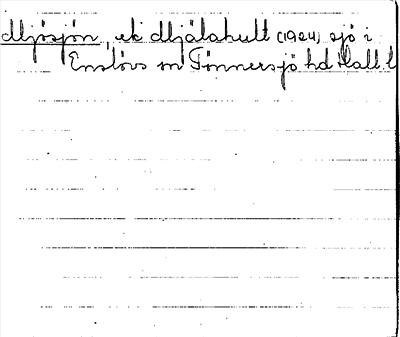 Mjösjön, ek Mjälahult (1924) sjö i
Enslövs sn Tönnersjö hd Hall l